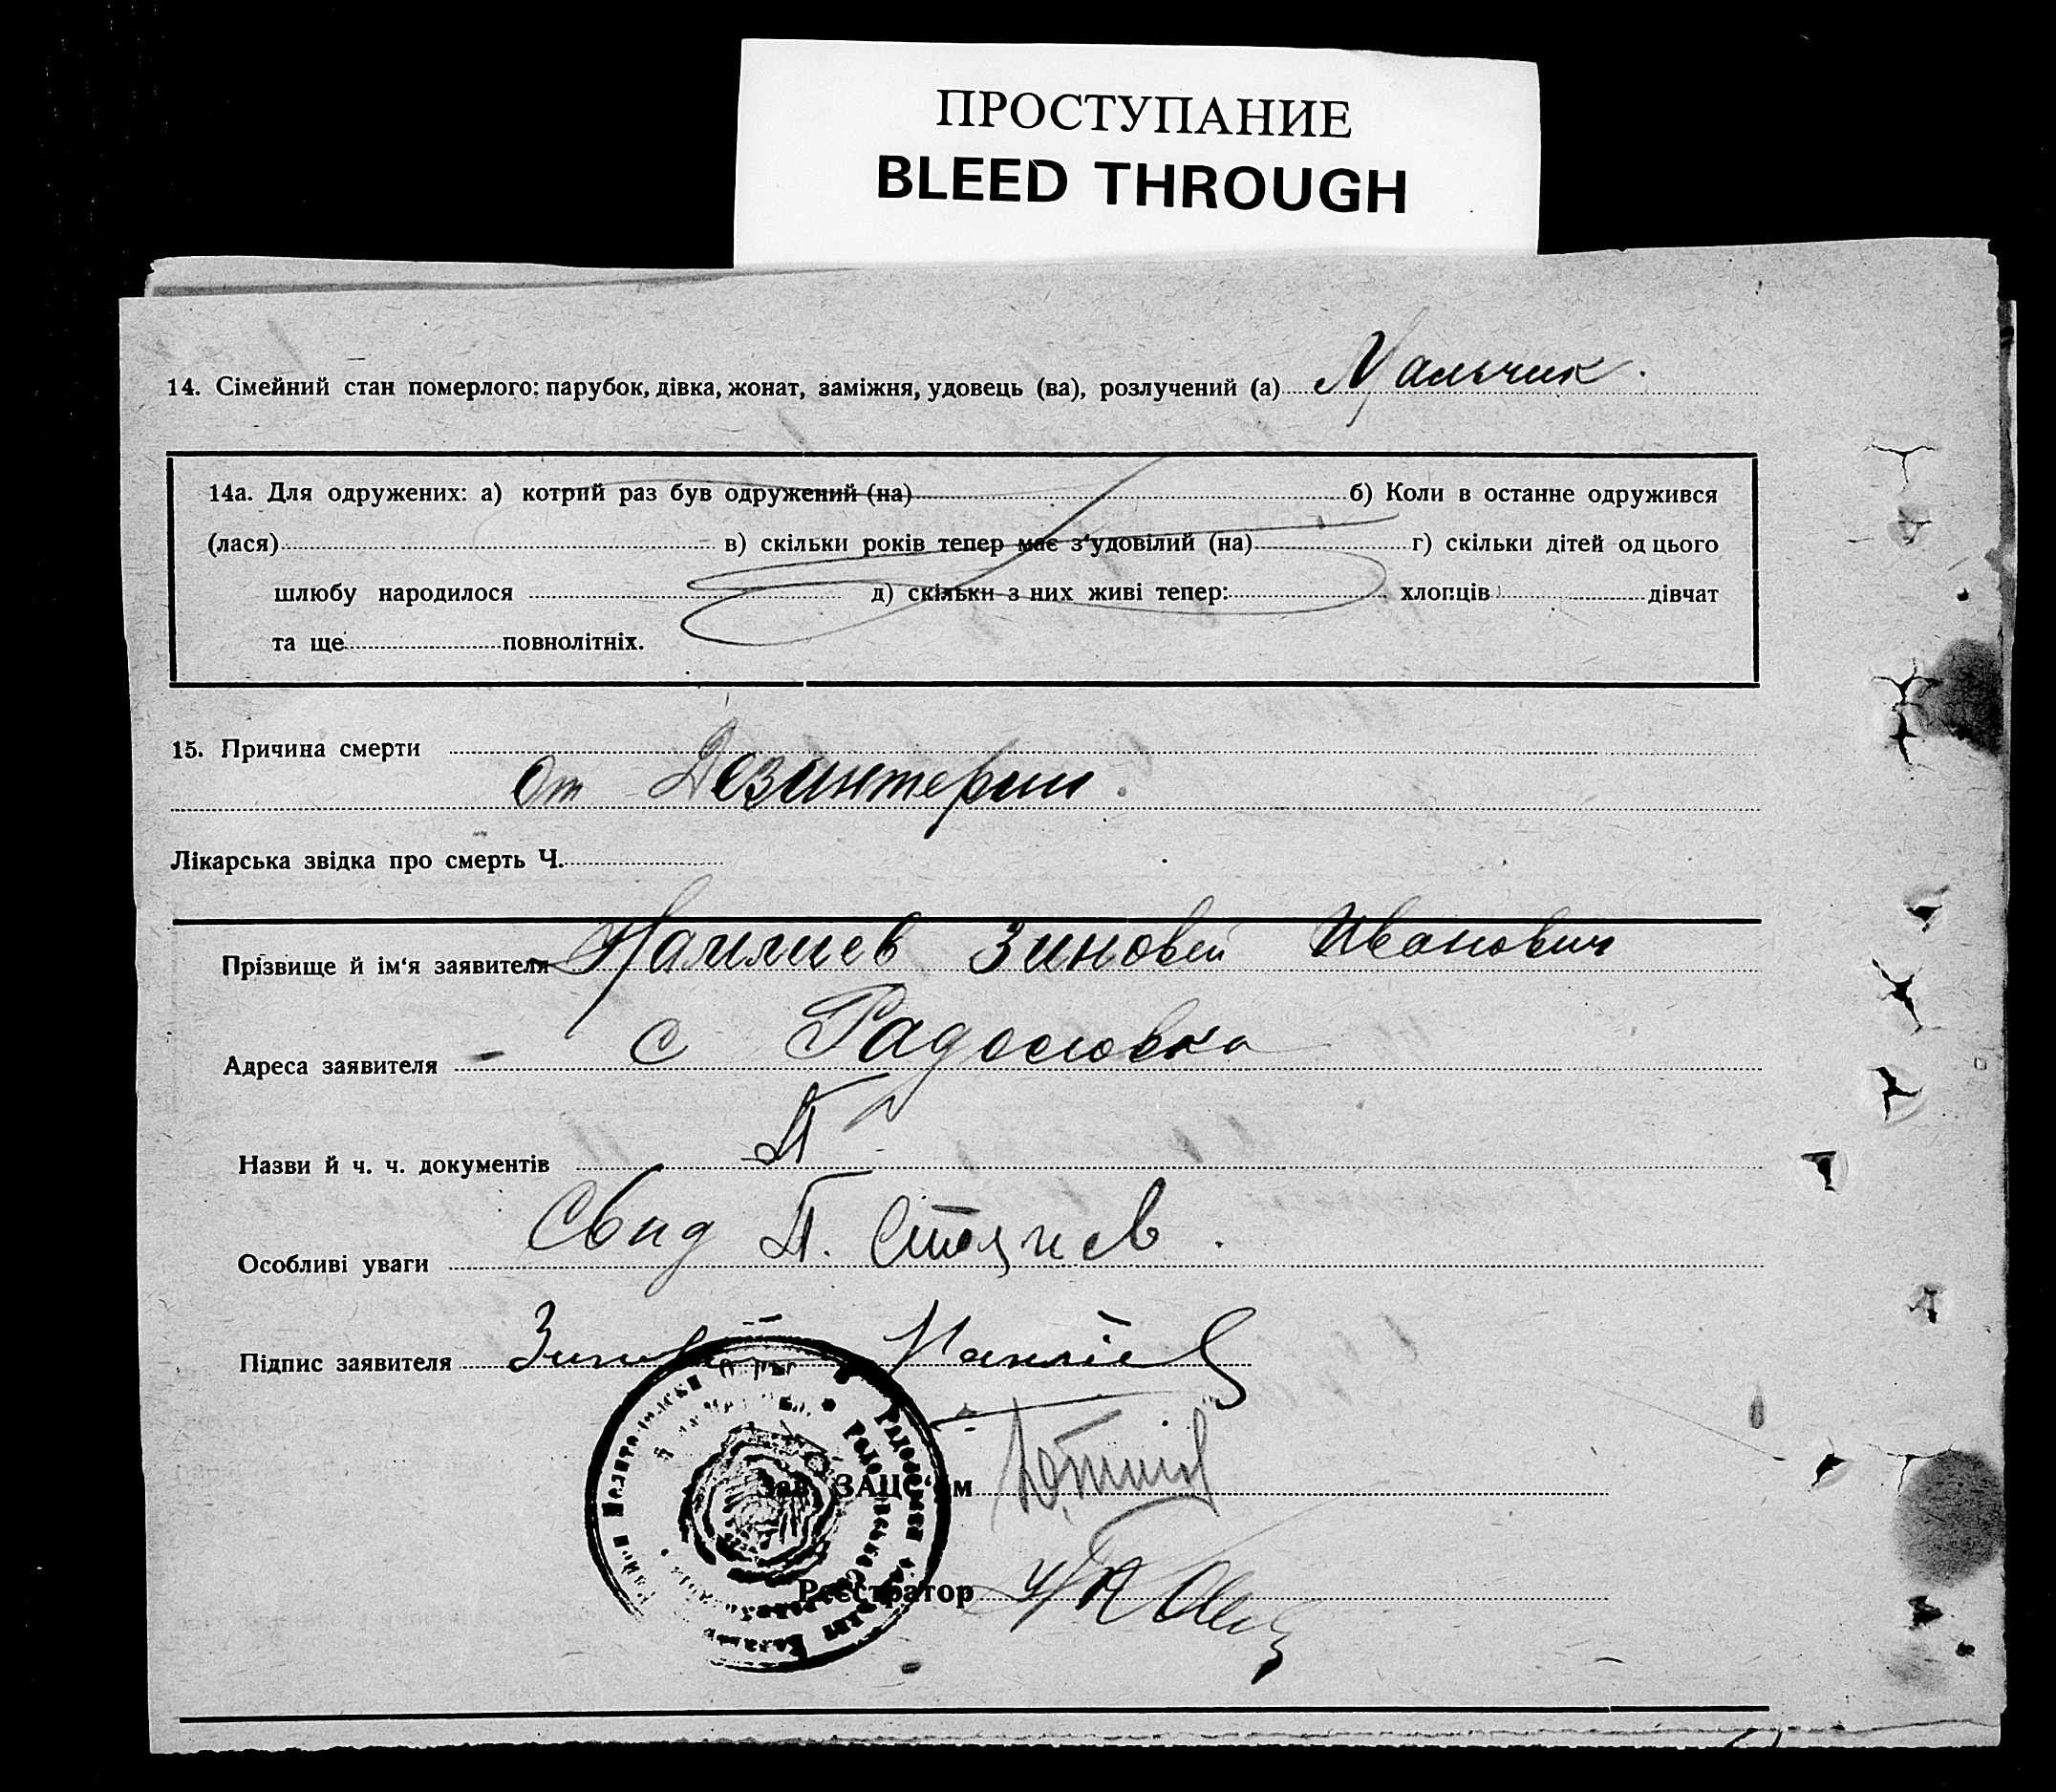 ПРОСТУПАНИЕ
BLEED THROUGH
14. Сімейний стан померлого: парубок, дівка, жонат, заміжня, удовець (ва), розлучений (а) Мальчик.
14а. Для одружених: а) котрий раз був одружений (на) б) Коли в останне одружився
(лася) в) скільки років тепер має з'удовілий (на) г) скільки дітей од цього
шлюбу народилося д) скільки з них живі тепер: хлопців дівчат
та ще повнолітніх.
15. Причина смерти
От Дезинтерии.
Лікарська звідка про смерть Ч.
Прізвище й ім'я заявителя Камлиев Зиновей Иванович
Адреса заявителя с Радоловка
Назви й ч. ч. документів
Особливі уваги Свид П. Стоянов.
Підпис заявителя
Зав. ЗАЦС'ом
Реєстратор